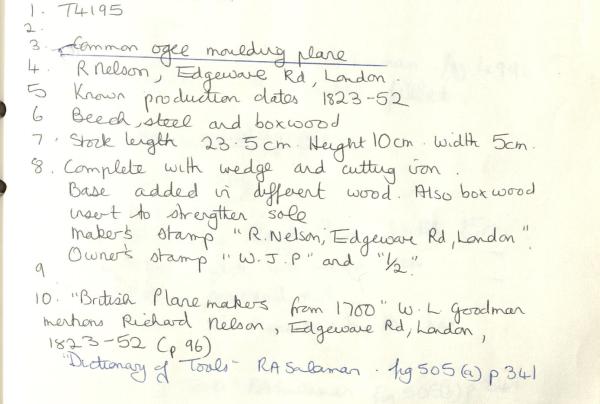 1. T4195
2.
3. Common ogee moulding plane
4. R Nelson, Edgeware Rd, London.
5 Known production dates 1823-52
6 Beech, steel and boxwood
7. Stock length 23.5cm. Height 10cm. Width 5cm.
8. Complete with wedge and cutting iron.
Base added in different wood. Also boxwood
insert to strengthen sole
Maker's stamp "R. Nelson, Edgeware Rd, London".
Owner's stamp "W.J.P" and "1/2".
9
10. "British Plane makers from 1700" W.L Goodman
mentions Richard Nelson, Edgeware Rd, London,
1823-52 (p 96)
"Dictionary of Tools" - RA Salaman. fig 505(a) p 341